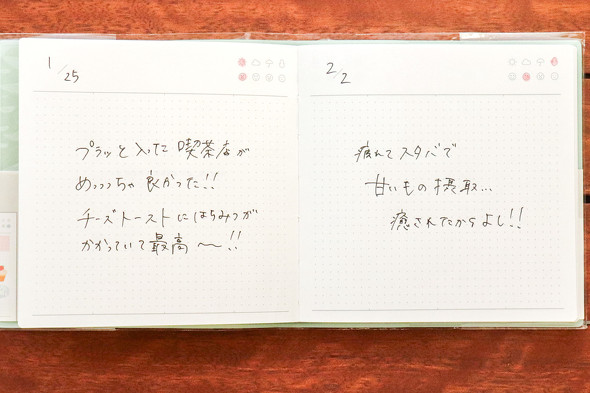 1/25
プラッと入った喫茶店が
めっっっちゃ良かった!!
チーズトーストにはちみつが
かかっていて最高〜!!
2/2
疲れてスタバで
甘いもの摂取...
癒されたからよし!!